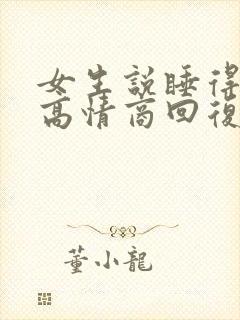 女生說睡得
高情商回復
董小龍